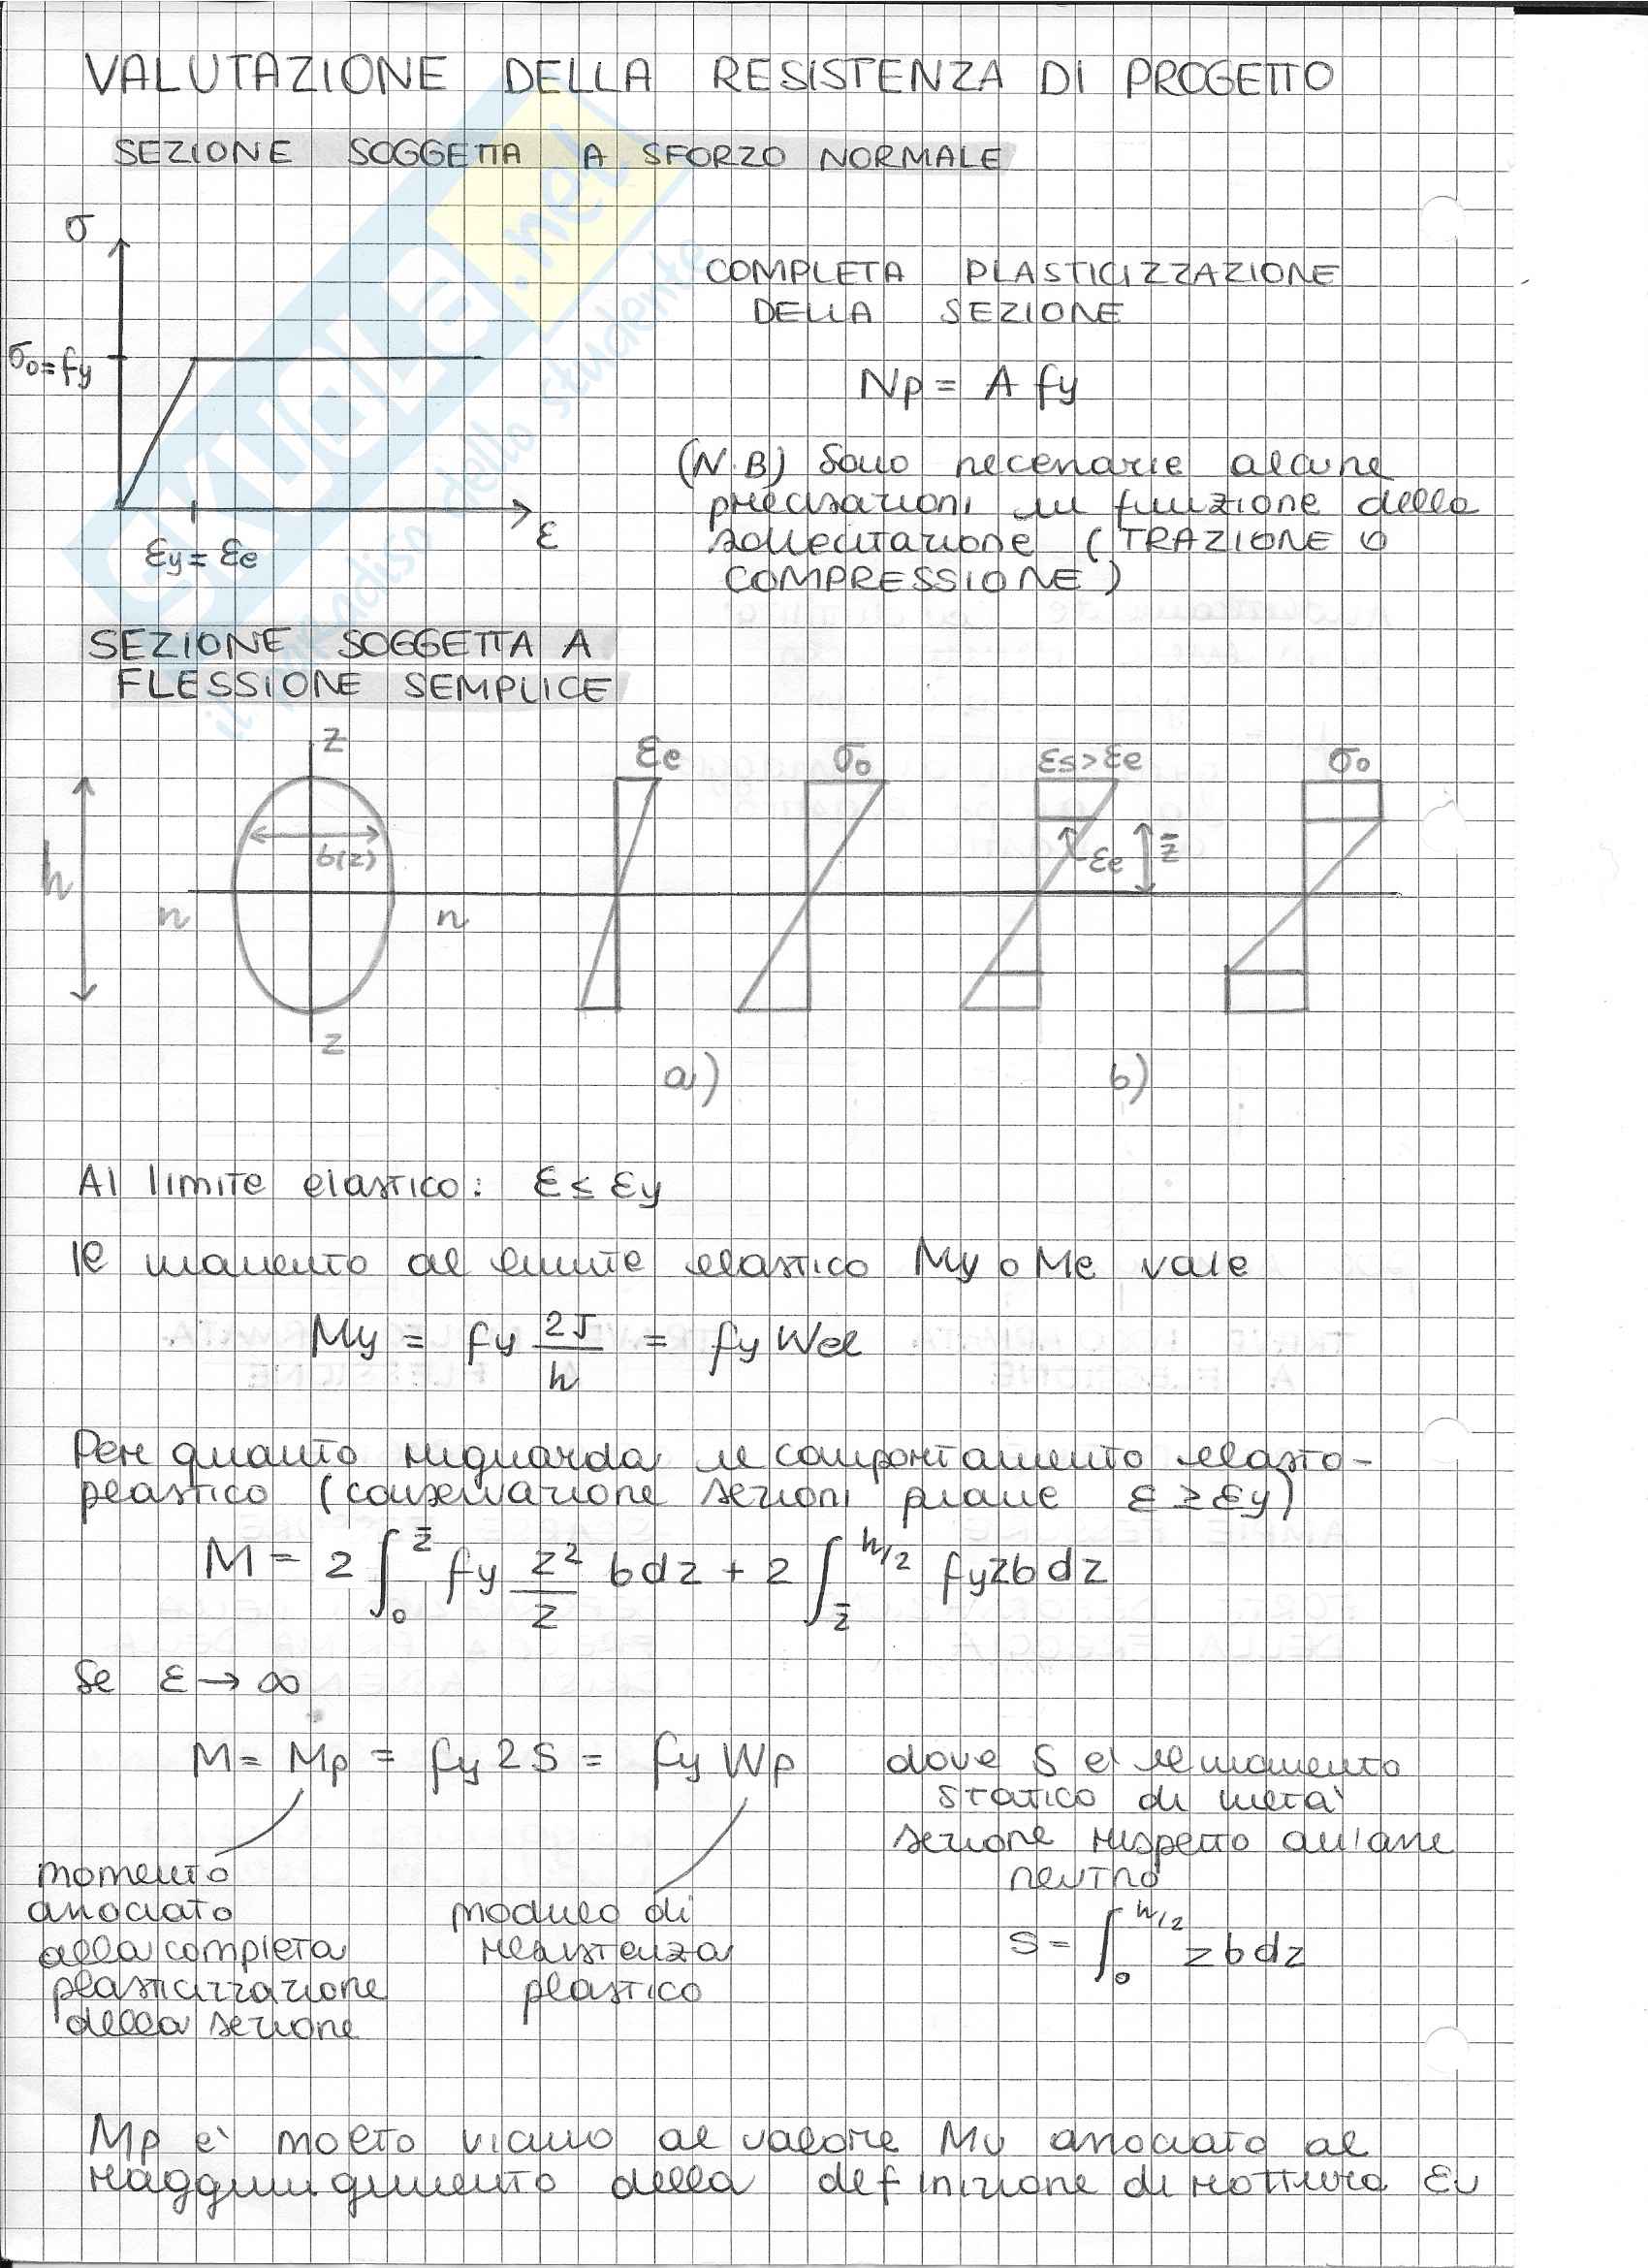 VALUTAZIONE DELLA RESISTENZA DI PROGETTO
SEZIONE SOGGETTA A SFORZO NORMALE
σ
σ₀=fy
εy = εe
ε
COMPLETA PLASTICIZZAZIONE
DELLA SEZIONE
Np = A fy
(N.B) Sono necessarie alcune
precisazioni in funzione della
sollecitazione (TRAZIONE o
COMPRESSIONE)
SEZIONE SOGGETTA A
FLESSIONE SEMPLICE
z
εe
σ₀
εs>εe
σ₀
h
b(z)
εe
z̄
n
n
z
a)
b)
Al limite elastico: ε ≤ εy
Il momento al limite elastico My o Me vale
My = fy 2J/h = fy Wel
Per quanto riguarda il comportamento elasto-
plastico (conservazione sezioni piane ε ≥ εy)
M = 2 ∫₀^z̄ fy z²/z b dz + 2 ∫_z̄^h/2 fy z b dz
Se ε → ∞
M = Mp = fy 2S = fy Wp
dove S è il momento
statico di metà
sezione rispetto all'asse
neutro
S = ∫₀^h/2 z b dz
momento
associato
alla completa
plasticizzazione
della sezione
modulo di
resistenza
plastico
Mp è molto vicino al valore Mu associato al
raggiungimento della definizione di rottura εu
skuola.net
il paradiso dello studente